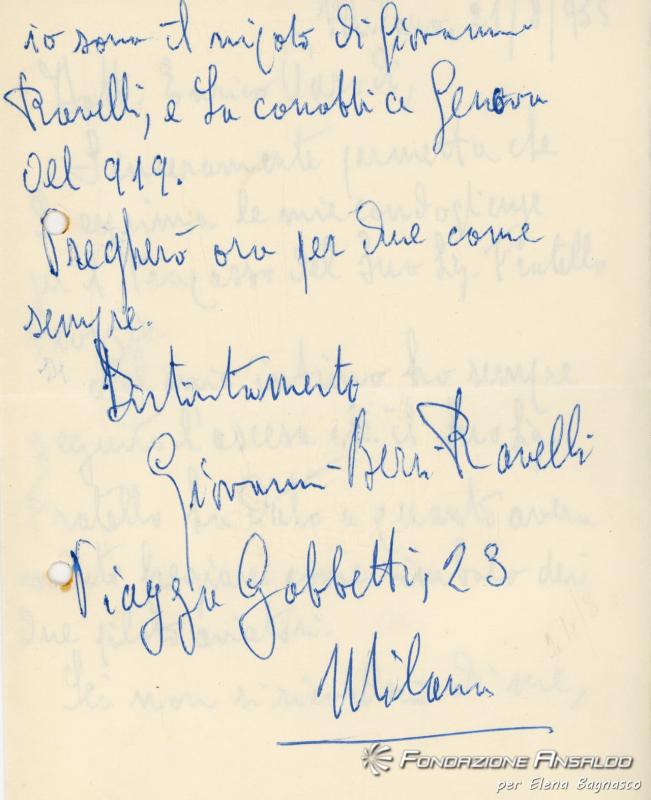 io sono il nipote di Giovanni
Ravelli, e La conobbi a Genova
nel 919.
Pregherò ora per due come
sempre.
Distintamente
Giovanni-Bern-Ravelli
Piazza Gobbetti, 23
Milano
FONDAZIONE ANSALDO
per Elena Bagnasco